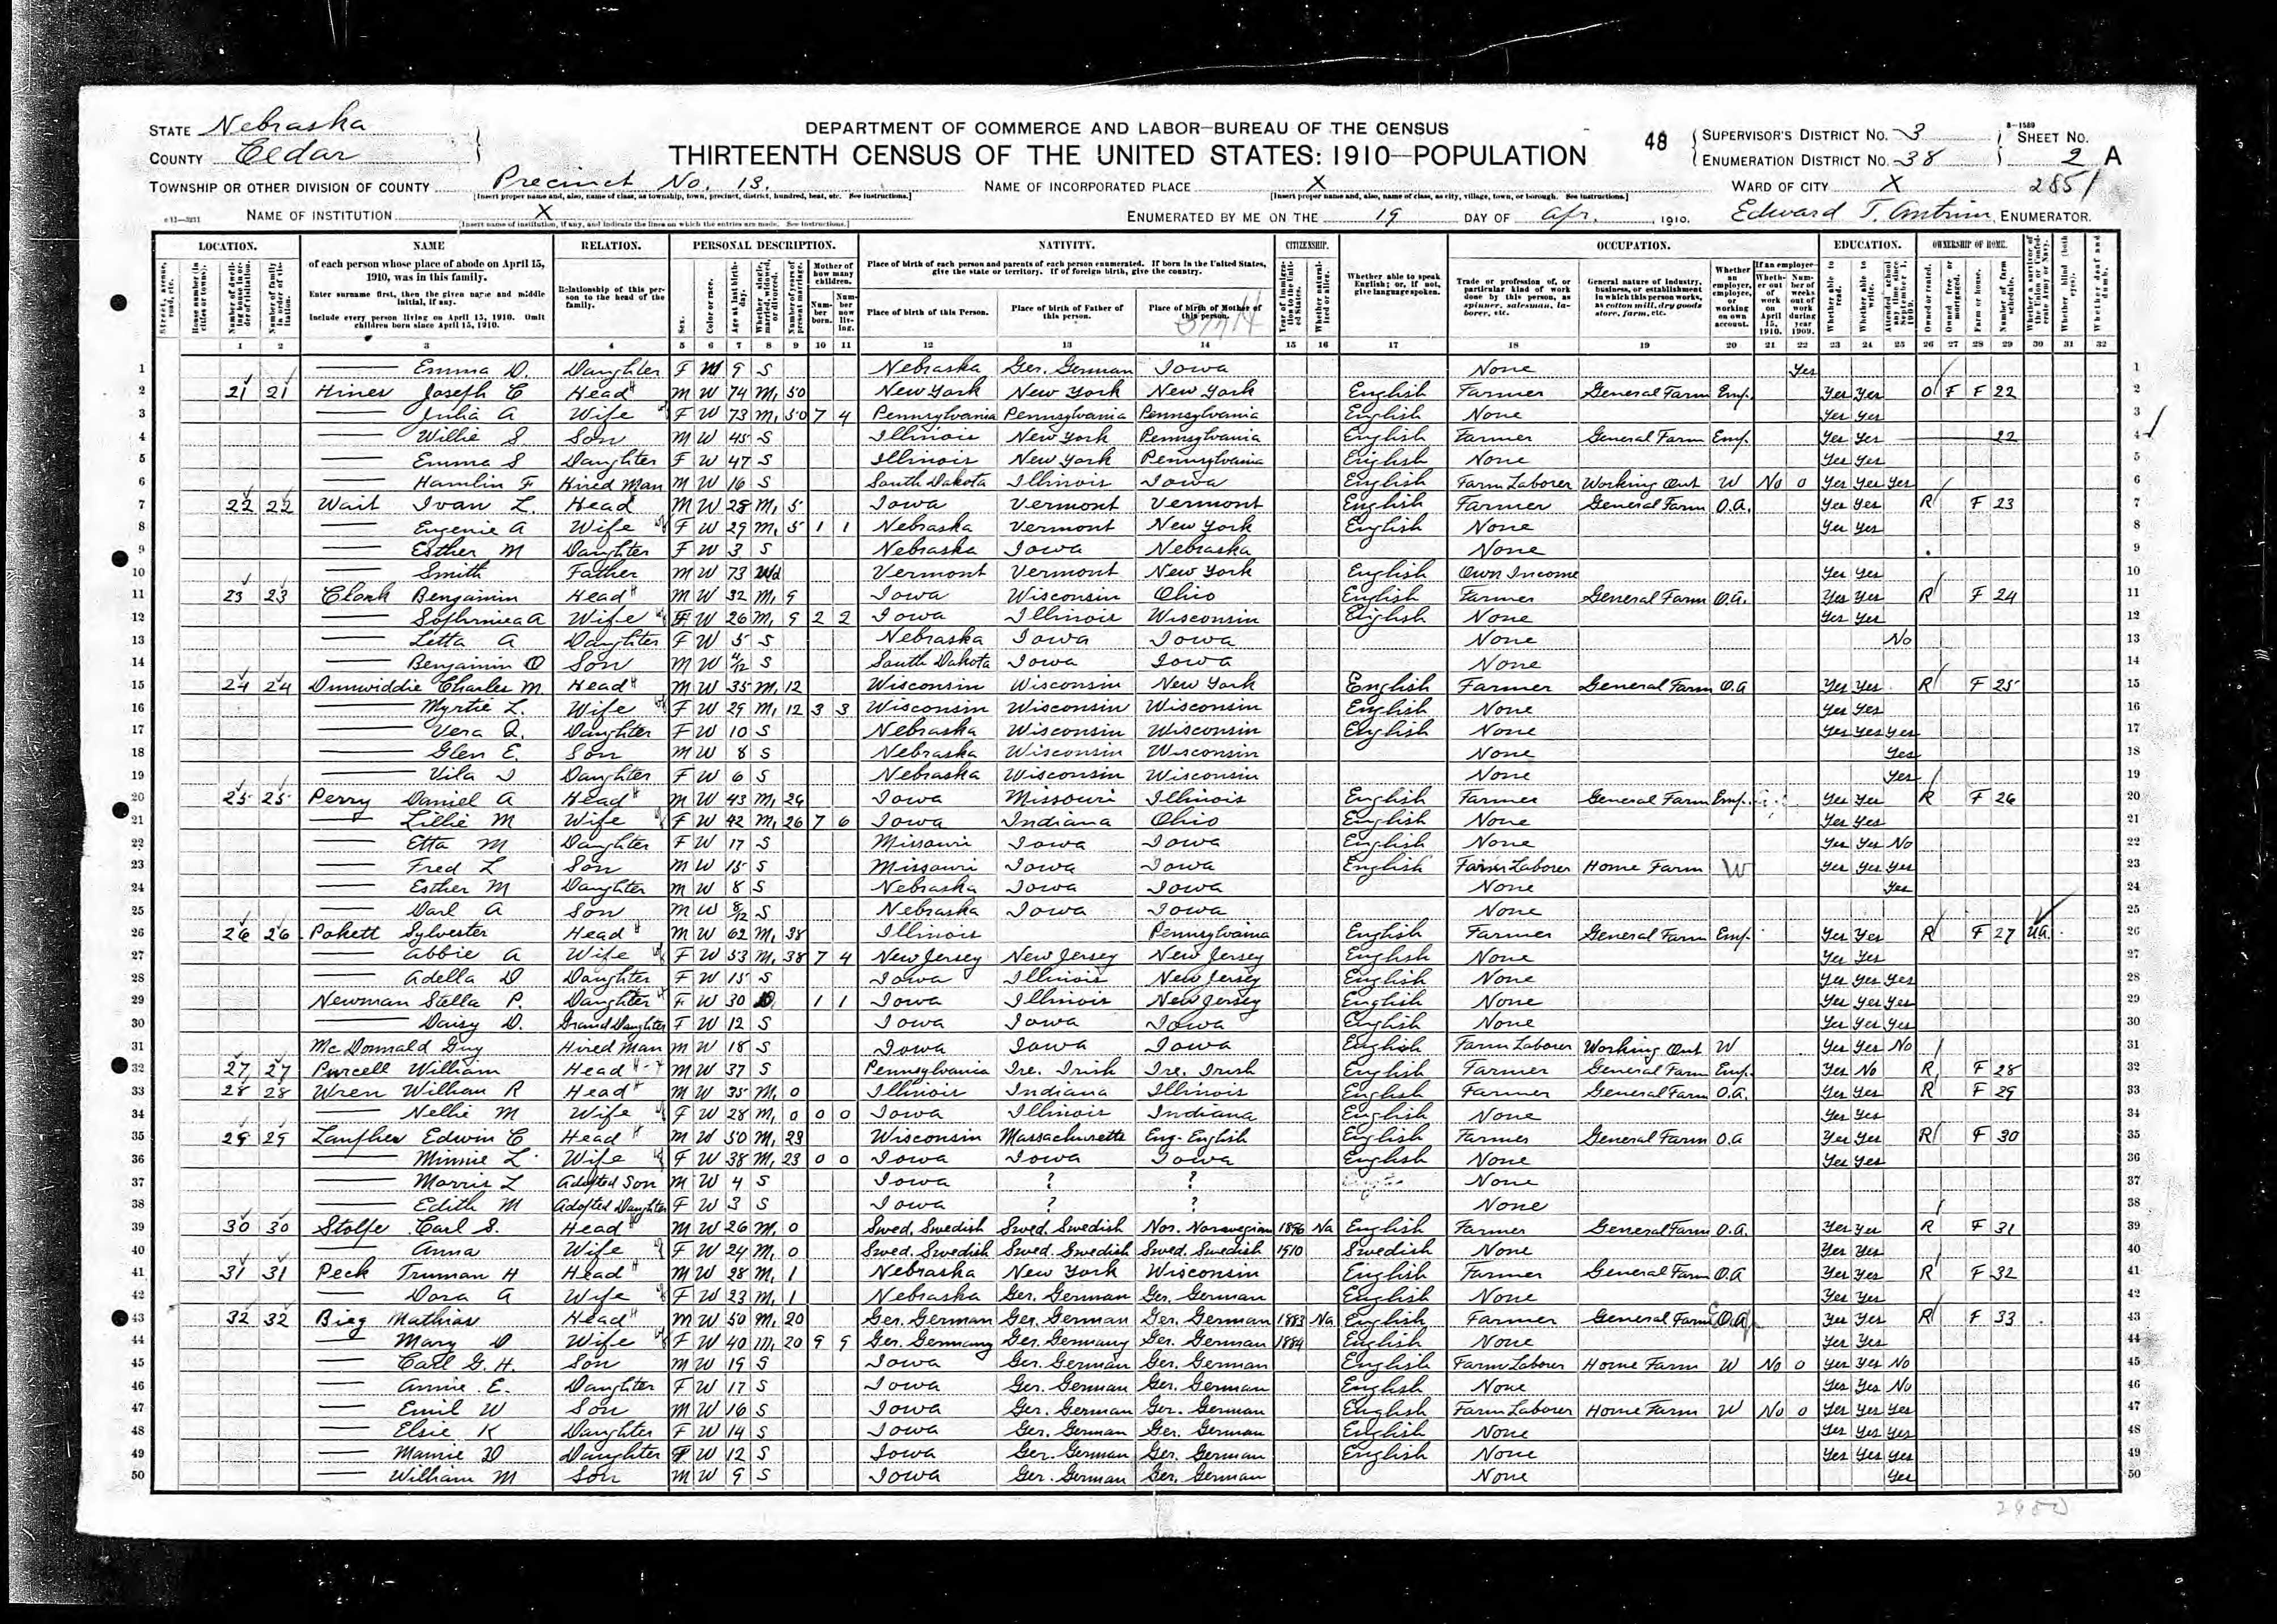 STATE Nebraska
COUNTY Cedar
DEPARTMENT OF COMMERCE AND LABOR—BUREAU OF THE CENSUS
THIRTEENTH CENSUS OF THE UNITED STATES: 1910—POPULATION
48
SUPERVISOR'S DISTRICT No. 3
ENUMERATION DISTRICT No. 38
8—1589
SHEET No. 2 A
2851
TOWNSHIP OR OTHER DIVISION OF COUNTY Precinct No. 13.
[Insert proper name and, also, name of class, as township, town, precinct, district, hundred, beat, etc. See instructions.]
NAME OF INCORPORATED PLACE X
[Insert proper name and, also, name of class, as city, village, town, or borough. See instructions.]
WARD OF CITY X
NAME OF INSTITUTION X
[Insert name of institution, if any, and indicate the lines on which the entries are made. See instructions.]
ENUMERATED BY ME ON THE 19 DAY OF Apr., 1910.
Edward T. Antrim, ENUMERATOR.
LOCATION. NAME RELATION. PERSONAL DESCRIPTION. NATIVITY. CITIZENSHIP. OCCUPATION. EDUCATION. OWNERSHIP OF HOME.
1 2 3 4 5 6 7 8 9 10 11 12 13 14 15 16 17 18 19 20 21 22 23 24 25 26 27 28 29 30 31 32
1 Emma D. Daughter F W 9 S Nebraska Ger. German Iowa None Yes 1
2 21 21 Hiner Joseph C Head M W 74 M1 50 New York New York New York English Farmer General Farm Emp. Yes Yes O F F 22 2
3 Julia A Wife F W 73 M1 50 7 4 Pennsylvania Pennsylvania Pennsylvania English None Yes Yes 3
4 Willie S Son M W 45 S Illinois New York Pennsylvania English Farmer General Farm Emp. Yes Yes 22 4
5 Emma S Daughter F W 47 S Illinois New York Pennsylvania English None Yes Yes 5
6 Hamlin F Hired Man M W 16 S South Dakota Illinois Iowa English Farm Laborer Working Out W No 0 Yes Yes Yes 6
7 22 22 Wait Ivan L. Head M W 28 M1 5 Iowa Vermont Vermont English Farmer General Farm O.A. Yes Yes R F 23 7
8 Eugenie A Wife F W 29 M1 5 1 1 Nebraska Vermont New York English None Yes Yes 8
9 Esther M Daughter F W 3 S Nebraska Iowa Nebraska None 9
10 Smith Father M W 73 Wd Vermont Vermont New York English Own Income Yes Yes 10
11 23 23 Clark Benjamin Head M W 32 M1 9 Iowa Wisconsin Ohio English Farmer General Farm O.A. Yes Yes R F 24 11
12 Wife F W 26 M1 9 2 2 Iowa Illinois Wisconsin English None Yes Yes 12
13 Letta A Daughter F W 5 S Nebraska Iowa Iowa None No 13
14 Benjamin O Son M W 4/12 S South Dakota Iowa Iowa None 14
15 24 24 Dunwiddie Charles M. Head M W 35 M1 12 Wisconsin Wisconsin New York English Farmer General Farm O.A Yes Yes R F 25 15
16 Myrtie L. Wife F W 29 M1 12 3 3 Wisconsin Wisconsin Wisconsin English None Yes Yes 16
17 Vera Daughter F W 10 S Nebraska Wisconsin Wisconsin English None Yes Yes Yes 17
18 Glen E. Son M W 8 S Nebraska Wisconsin Wisconsin None Yes 18
19 Vila I Daughter F W 6 S Nebraska Wisconsin Wisconsin None Yes 19
20 25 25 Perry Daniel A Head M W 43 M1 26 Iowa Missouri Illinois English Farmer General Farm Emp. Yes Yes R F 26 20
21 Lillie M Wife F W 42 M1 26 7 6 Iowa Indiana Ohio English None Yes Yes 21
22 Etta M Daughter F W 17 S Missouri Iowa Iowa English None Yes Yes No 22
23 Fred L Son M W 15 S Missouri Iowa Iowa English Farm Laborer Home Farm W Yes Yes Yes 23
24 Esther M Daughter M W 8 S Nebraska Iowa Iowa None Yes 24
25 Darl A Son M W 8/12 S Nebraska Iowa Iowa None 25
26 26 26 Pokett Sylvester Head M W 62 M1 38 Illinois Pennsylvania English Farmer General Farm Emp. Yes Yes R F 27 U.A. 26
27 Abbie A Wife F W 53 M1 38 7 4 New Jersey New Jersey New Jersey English None Yes Yes 27
28 Adella D Daughter F W 15 S Iowa Illinois New Jersey English None Yes Yes Yes 28
29 Newman Stella P. Daughter F W 30 D 1 1 Iowa Illinois New Jersey English None Yes Yes Yes 29
30 Daisy D. Grand Daughter F W 12 S Iowa Iowa Iowa English None Yes Yes Yes 30
31 Mc Donnald Guy Hired Man M W 18 S Iowa Iowa Iowa English Farm Laborer Working Out W Yes Yes No 31
32 27 27 Purcell William Head M W 37 S Pennsylvania Ire. Irish Ire. Irish English Farmer General Farm Emp. Yes No R F 28 32
33 28 28 Wren William R Head M W 35 M1 0 Illinois Indiana Illinois English Farmer General Farm O.A. Yes Yes R F 29 33
34 Nellie M Wife F W 28 M1 0 0 0 Iowa Illinois Indiana English None Yes Yes 34
35 29 29 Lanpher Edwin C Head M W 50 M1 23 Wisconsin Massachusetts Eng. English English Farmer General Farm O.A Yes Yes R F 30 35
36 Minnie L. Wife F W 38 M1 23 0 0 Iowa Iowa Iowa English None Yes Yes 36
37 Morris L Adopted Son M W 4 S Iowa ? ? None 37
38 Edith M Adopted Daughter F W 3 S Iowa ? ? None 38
39 30 30 Stolpe Carl S. Head M W 26 M1 0 Swed. Swedish Swed. Swedish Nor. Norwegian 1896 Na English Farmer General Farm O.A. Yes Yes R F 31 39
40 Anna Wife F W 24 M1 0 Swed. Swedish Swed. Swedish Swed. Swedish 1910 Swedish None Yes Yes 40
41 31 31 Peck Truman H Head M W 28 M1 1 Nebraska New York Wisconsin English Farmer General Farm O.A Yes Yes R F 32 41
42 Dora A Wife F W 23 M1 1 Nebraska Ger. German Ger. German English None Yes Yes 42
43 32 32 Bieg Mathias Head M W 50 M1 20 Ger. German Ger. German Ger. German 1883 Na English Farmer General Farm O.A Yes Yes R F 33 43
44 Mary D Wife F W 40 M1 20 9 9 Ger. Germany Ger. Germany Ger. German 1884 English None Yes Yes 44
45 Carl G. H. Son M W 19 S Iowa Ger. German Ger. German English Farm Laborer Home Farm W No 0 Yes Yes No 45
46 Annie E. Daughter F W 17 S Iowa Ger. German Ger. German English None Yes Yes No 46
47 Emil W Son M W 16 S Iowa Ger. German Ger. German English Farm Laborer Home Farm W No 0 Yes Yes Yes 47
48 Elsie K Daughter F W 14 S Iowa Ger. German Ger. German English None Yes Yes Yes 48
49 Mamie D Daughter F W 12 S Iowa Ger. German Ger. German English None Yes Yes Yes 49
50 William M Son M W 9 S Iowa Ger. German Ger. German None Yes 50